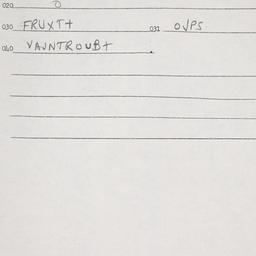 020 O
030 FRUXT+ 031 OJPS
040 VAJNTROUB+